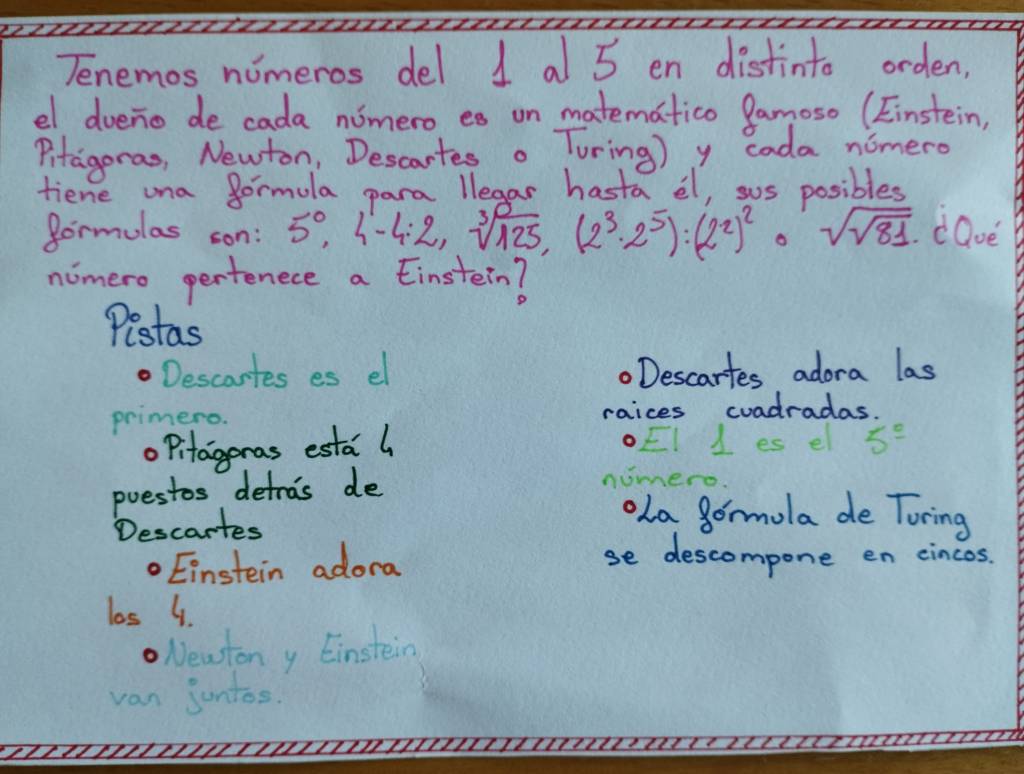 Tenemos números del 1 al 5 en distinto orden,
el dueño de cada número es un matemático famoso (Einstein,
Pitágoras, Newton, Descartes o Turing) y cada número
tiene una fórmula para llegar hasta él, sus posibles
fórmulas son: 5⁰, 4-4:2, ∛125, (2³·2⁵):(2²)² o √√81. ¿Qué
número pertenece a Einstein?
Pistas
• Descartes es el
primero.
• Pitágoras está 4
puestos detrás de
Descartes
• Einstein adora
los 4.
• Newton y Einstein
van juntos.
• Descartes adora las
raices cuadradas.
• El 1 es el 5º
número.
• La fórmula de Turing
se descompone en cincos.